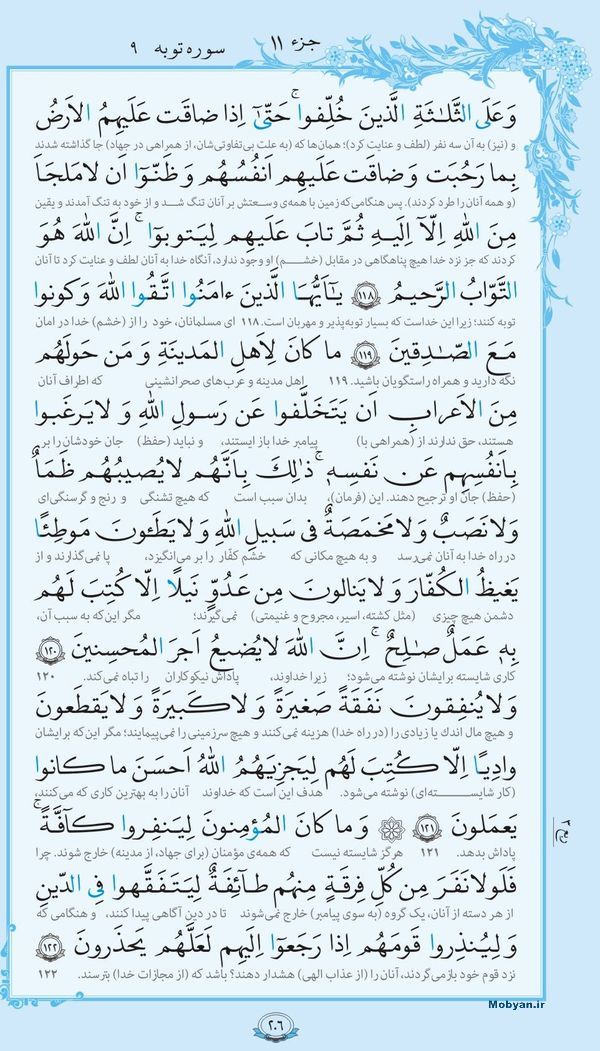 جزء ۱۱
سوره توبه ۹
وَ عَلَى الثَّلاٰثَةِ الَّذينَ خُلِّفوا ۚ حَتّىٰٓ اِذا ضاقَت عَلَيهِمُ الاَرضُ
و (نیز) به آن سه نفر (لطف و عنایت کرد)؛ همان‌ها که (به علت بی‌تفاوتی‌شان، از همراهی در جهاد) جا گذاشته شدند
بِما رَحُبَت وَ ضاقَت عَلَيهِم اَنفُسُهُم وَ ظَنّوٓا اَن لا مَلجَاَ
(و همه آنان را طرد کردند). پس هنگامی‌که زمین با همه‌ی وسعتش بر آنان تنگ شد و از خود به تنگ آمدند و یقین
مِنَ اللهِ اِلّآ اِلَيهِ ثُمَّ تابَ عَلَيهِم لِيَتوبوٓا ۚ اِنَّ اللهَ هُوَ
کردند که جز نزد خدا هیچ پناهگاهی در مقابل (خشم) او وجود ندارد، آنگاه خدا به آنان لطف و عنایت کرد تا آنان
التَّوّابُ الرَّحيمُ ۱۱۸ يٰٓاَيُّهَا الَّذينَ ءامَنُوا اتَّقُوا اللهَ وَ كونوا
توبه کنند؛ زیرا این خداست که بسیار توبه‌پذیر و مهربان است. ۱۱۸ ای مسلمانان، خود را از (خشم) خدا در امان
مَعَ الصّٰدِقينَ ۱۱۹ ما كانَ لِاَهلِ المَدينَةِ وَ مَن حَولَهُم
نگه دارید و همراه راستگویان باشید. ۱۱۹ اهل مدینه و عرب‌های صحرانشینی که اطراف آنان
مِنَ الاَعرابِ اَن يَتَخَلَّفوا عَن رَسولِ اللهِ وَ لا يَرغَبوا
هستند، حق ندارند از (همراهی با) پیامبر خدا باز ایستند، و نباید (حفظ) جان خودشان را بر
بِاَنفُسِهِم عَن نَفسِهٖ ۚ ذٰلِكَ بِاَنَّهُم لا يُصيبُهُم ظَمَاٌ
(حفظ) جان او ترجیح دهند. این (فرمان)، بدان سبب است که هیچ تشنگی و رنج و گرسنگی‌ای
وَ لا نَصَبٌ وَ لا مَخمَصَةٌ في سَبيلِ اللهِ وَ لا يَطَئونَ مَوطِئًا
در راه خدا به آنان نمی‌رسد و به هیچ مکانی که خشم کفّار را بر می‌انگیزد، پا نمی‌گذارند و از
يَغيظُ الكُفّارَ وَ لا يَنالونَ مِن عَدُوٍّ نَيلًا اِلّا كُتِبَ لَهُم
دشمن هیچ چیزی (مثل کشته، اسیر، مجروح و غنیمتی) نمی‌گیرند؛ مگر این‌که به سبب آن،
بِهٖ عَمَلٌ صٰلِحٌ ۚ اِنَّ اللهَ لا يُضيعُ اَجرَ المُحسِنينَ ۱۲۰
کاری شایسته برایشان نوشته می‌شود؛ زیرا خداوند، پاداش نیکوکاران را تباه نمی‌کند. ۱۲۰
وَ لا يُنفِقونَ نَفَقَةً صَغيرَةً وَ لا كَبيرَةً وَ لا يَقطَعونَ
و هیچ مال اندك یا زیادی را (در راه خدا) هزینه نمی‌کنند و هیچ سرزمینی را نمی‌پیمایند؛ مگر این‌که برایشان
وادِيًا اِلّا كُتِبَ لَهُم لِيَجزِيَهُمُ اللهُ اَحسَنَ ما كانوا
(کار شایسته‌ای) نوشته می‌شود. هدف این است که خداوند آنان را به بهترین کاری که می‌کنند،
يَعمَلونَ ۱۲۱ وَ ما كانَ المُؤمِنونَ لِيَنفِروا كآفَّةً ۚ
پاداش بدهد. ۱۲۱ هرگز شایسته نیست که همه‌ی مؤمنان (برای جهاد، از مدینه) خارج شوند. چرا
فَلَولا نَفَرَ مِن كُلِّ فِرقَةٍ مِنهُم طآئِفَةٌ لِيَتَفَقَّهوا فِي الدّينِ
از هر دسته از آنان، یک گروه (به سوی پیامبر) خارج نمی‌شوند تا در دین آگاهی پیدا کنند، و هنگامی که
وَ لِيُنذِروا قَومَهُم اِذا رَجَعوٓا اِلَيهِم لَعَلَّهُم يَحذَرونَ ۱۲۲
نزد قوم خود باز می‌گردند، آنان را (از عذاب الهی) هشدار دهند؟ باشد که (از مجازات خدا) بترسند. ۱۲۲
Mobyan.ir
۲۰۶